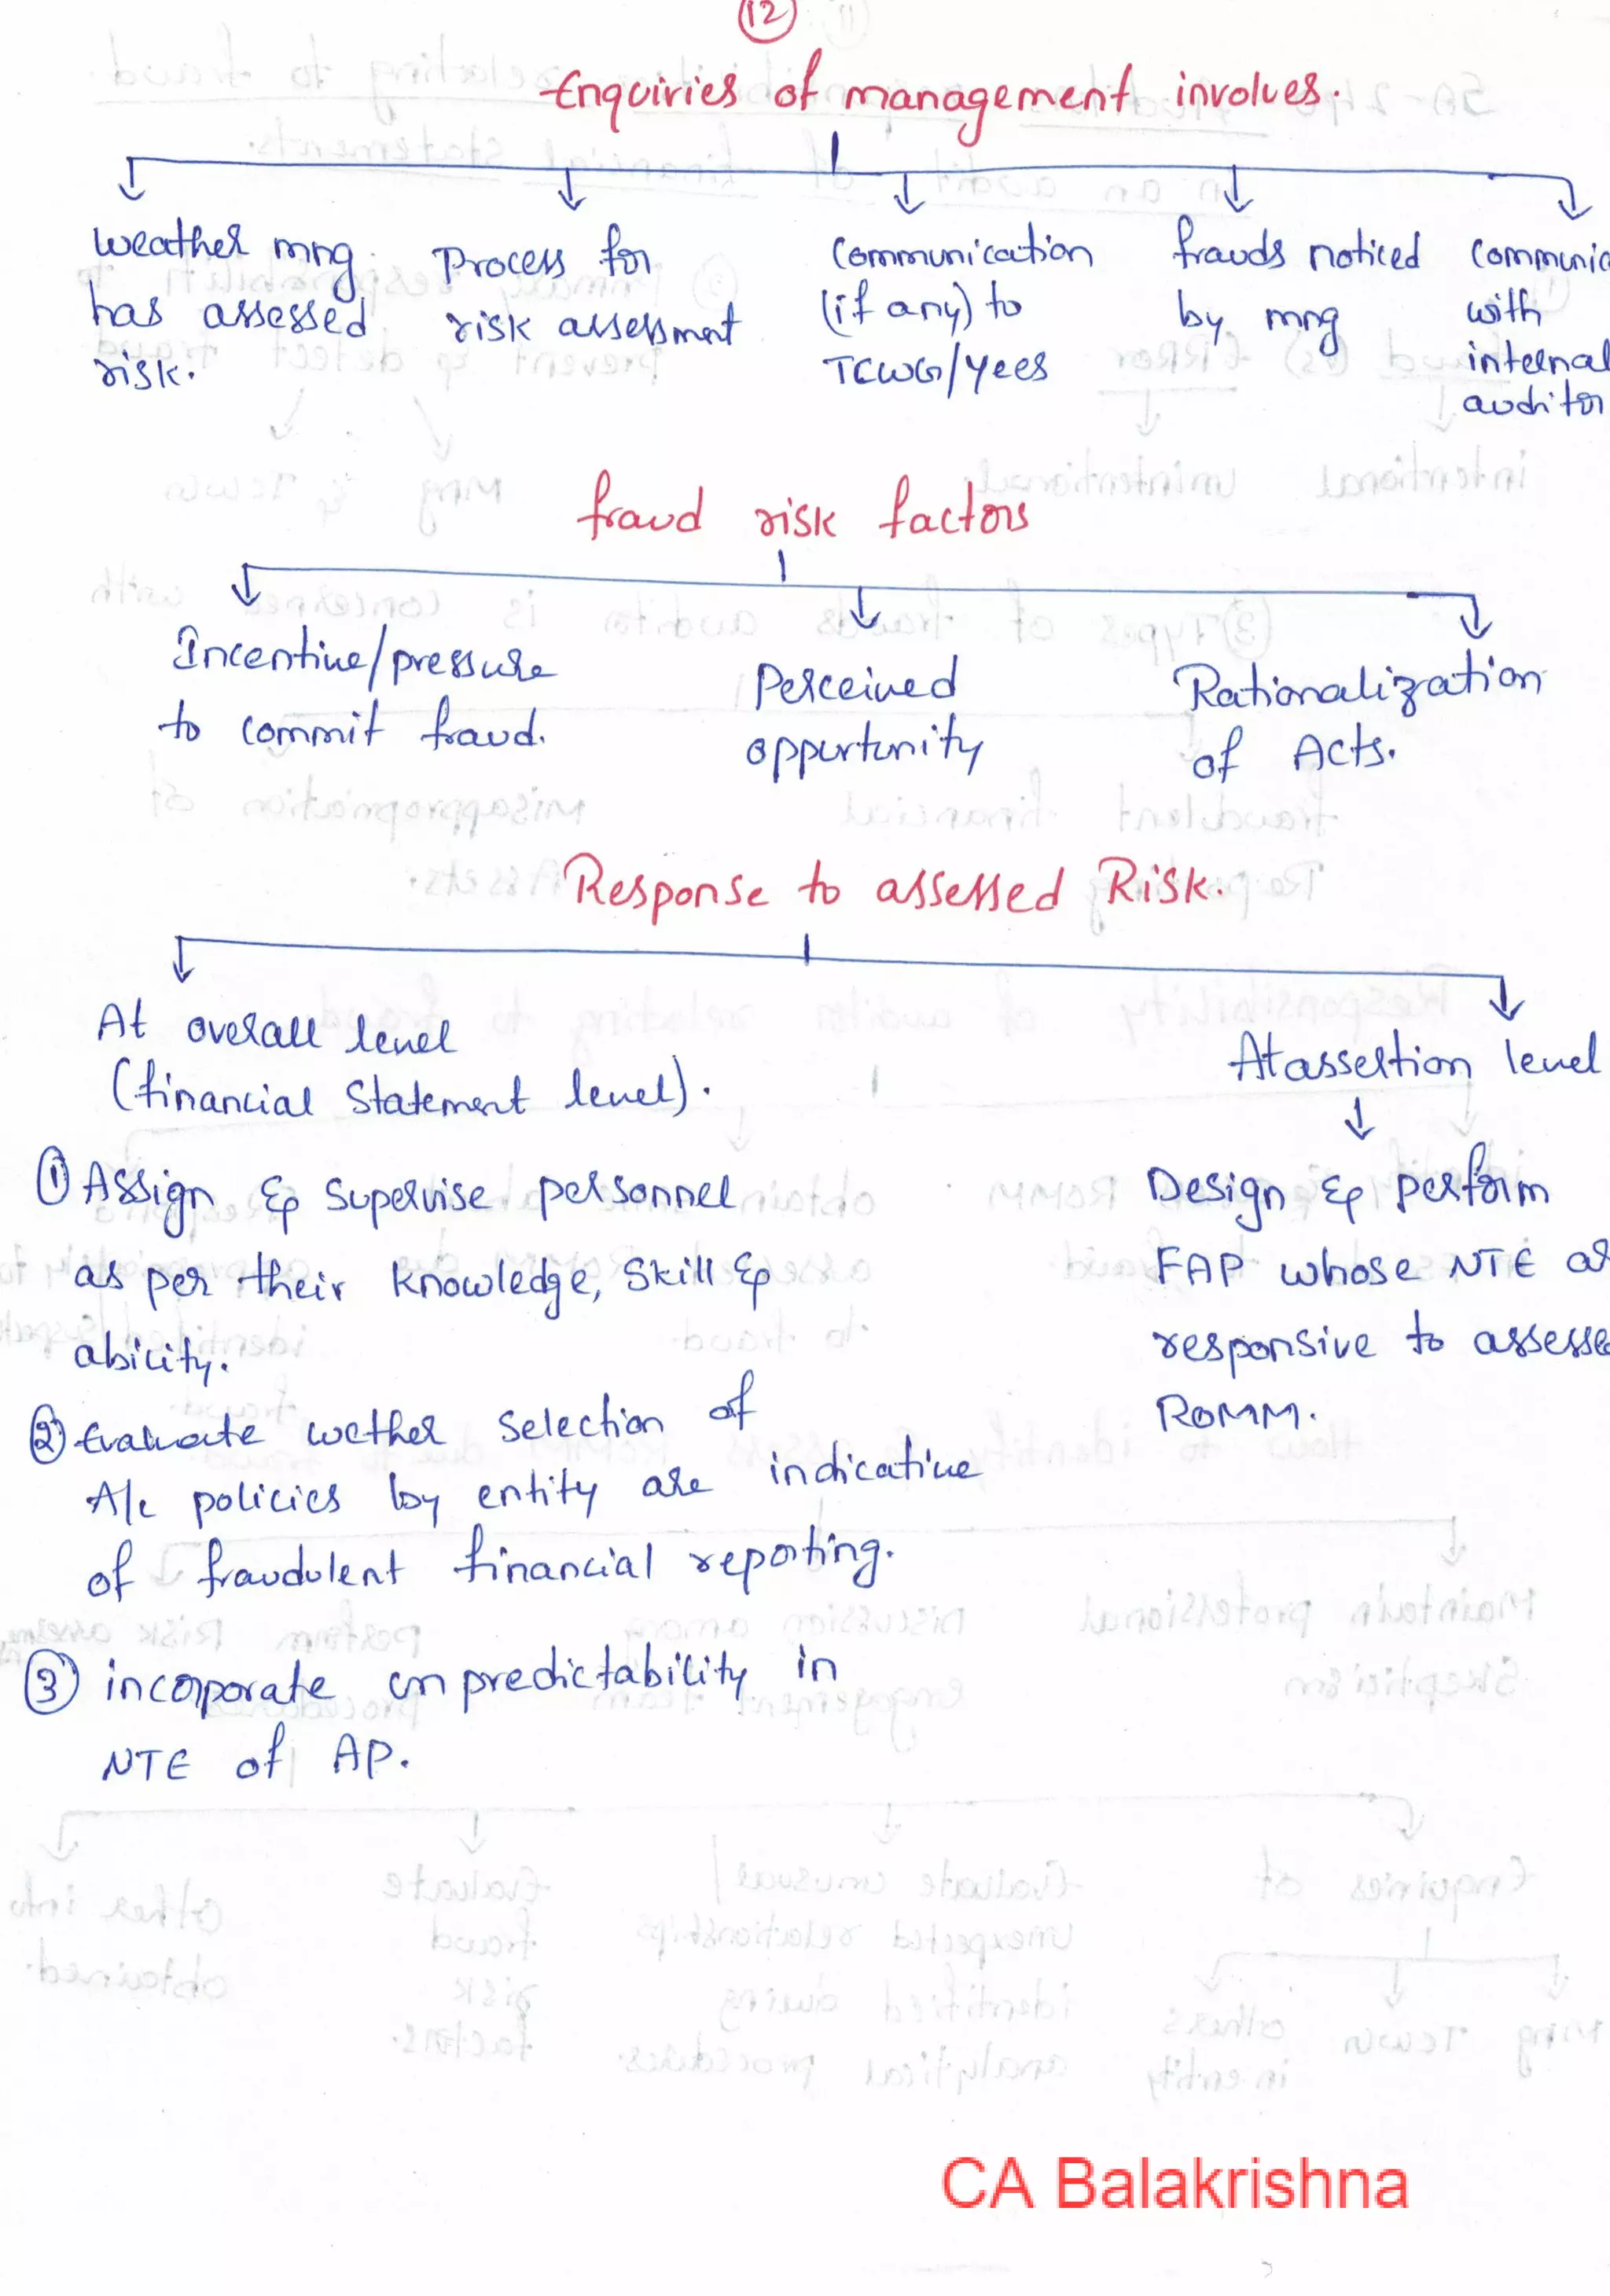 12
Enquiries of management involves.
weather mng
has assessed
risk.
Process for
risk assessment
Communication
(if any) to
TCWG/Yees
frauds noticed
by mng
Communic
with
internal
auditor
fraud risk factors
Incentive/pressure
to commit fraud.
Perceived
oppurtunity
Rationalization
of Acts.
Response to assessed Risk.
At overall level
(financial Statement level).
① Assign & Supervise personnel
as per their Knowledge, Skill &
ability.
② Evaluate wether Selection of
A/c policies by entity are indicative
of fraudulent financial reporting.
③ incorporate unpredictability in
NTE of AP.
At assertion level
Design & perform
FAP whose NTE a
responsive to assesse
ROMM.
CA Balakrishna